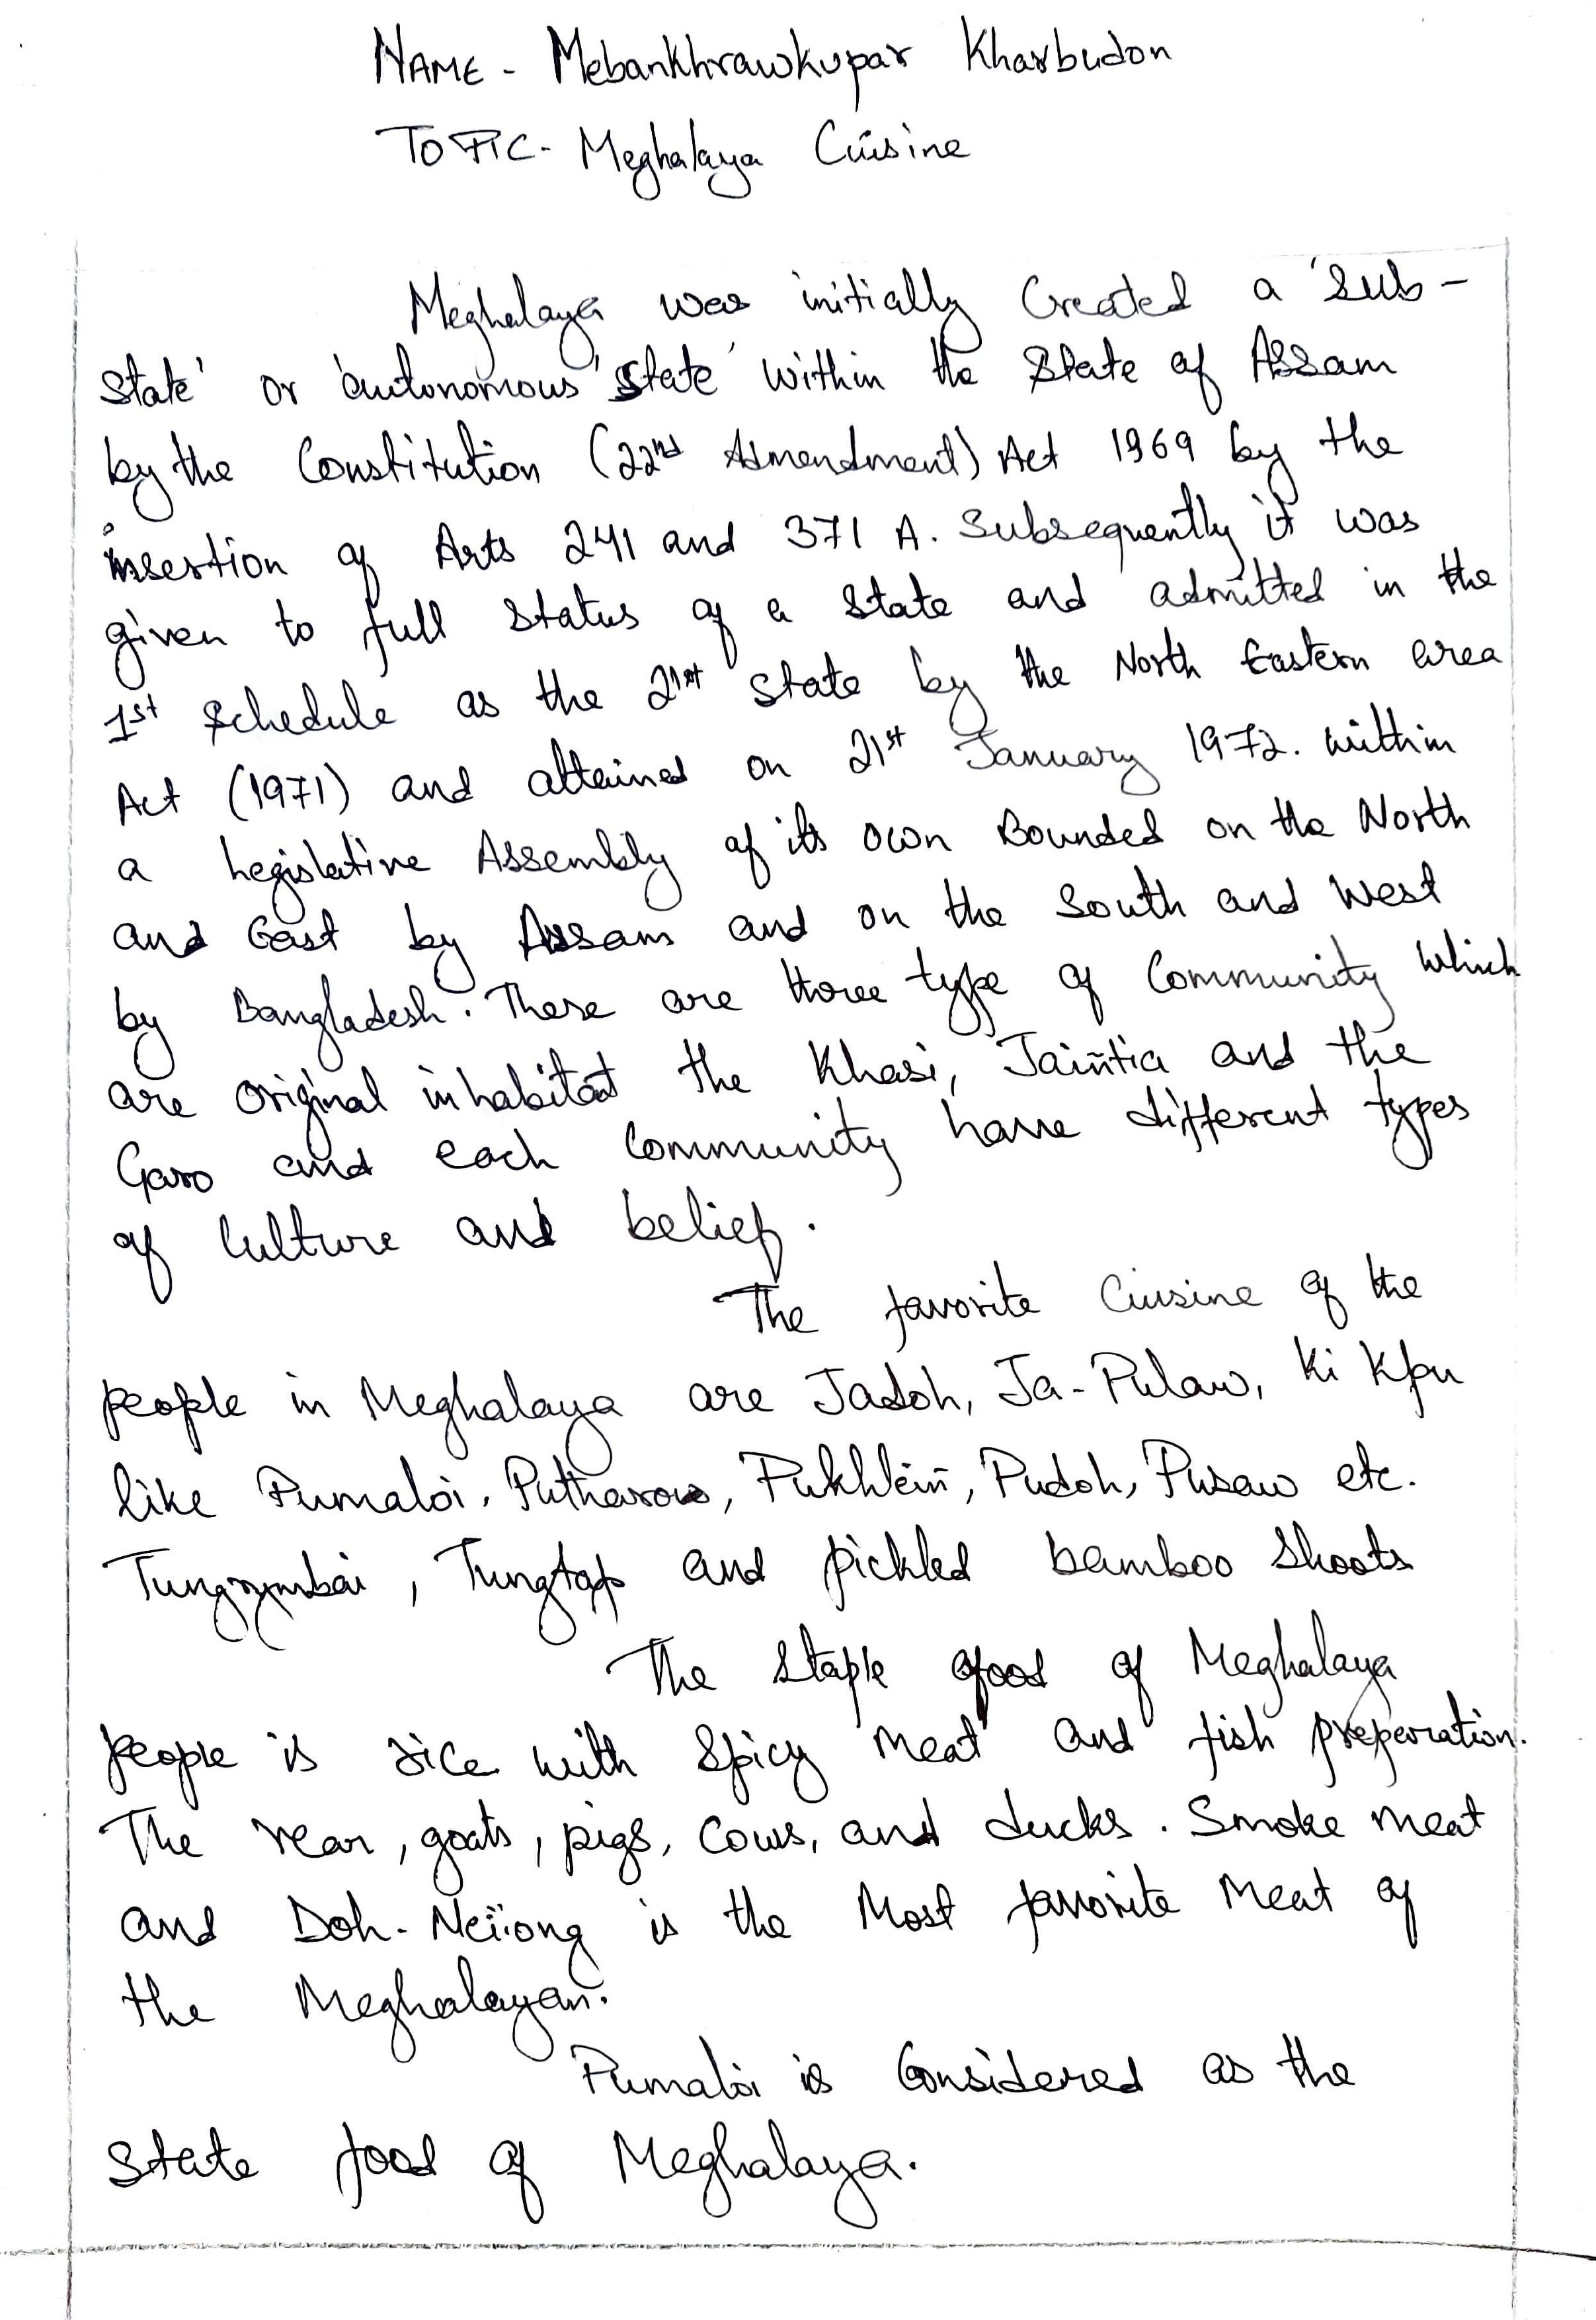 NAME - Mebankhrawkupar Kharbudon
TOPIC - Meghalaya Cuisine
Meghalaya was initially Created a 'Sub-
State' or 'autonomous State' within the State of Assam
by the Constitution (22nd Admendment) Act 1969 by the
insertion of Arts 241 and 371 A. Subsequently it was
given to full Status of a State and admitted in the
1st Schedule as the 21st State by the North Eastern area
Act (1971) and attained on 21st January 1972. within
a Legislative Assembly of its own Bounded on the North
and East by Assam and on the South and West
by Bangladesh. There are three type of Community which
are original inhabitat the Khasi, Jaiñtia and the
Garo and each Community have different types
of Culture and belief.
The favorite Cuisine of the
people in Meghalaya are Jadoh, Ja-Pulaw, Ki Kpu
like Pumaloi, Putharow, Pukhleiñ, Pudoh, Pusaw etc.
Tungrymbai, Tungtap and pickled bamboo Shoots
The Staple food of Meghalaya
people is rice with Spicy Meat and fish preperation.
The rear, goats, pigs, Cows, and ducks. Smoke meat
and Doh-Neiïong is the Most favorite Meat of
the Meghalayan.
Pumaloi is Considered as the
State food of Meghalaya.